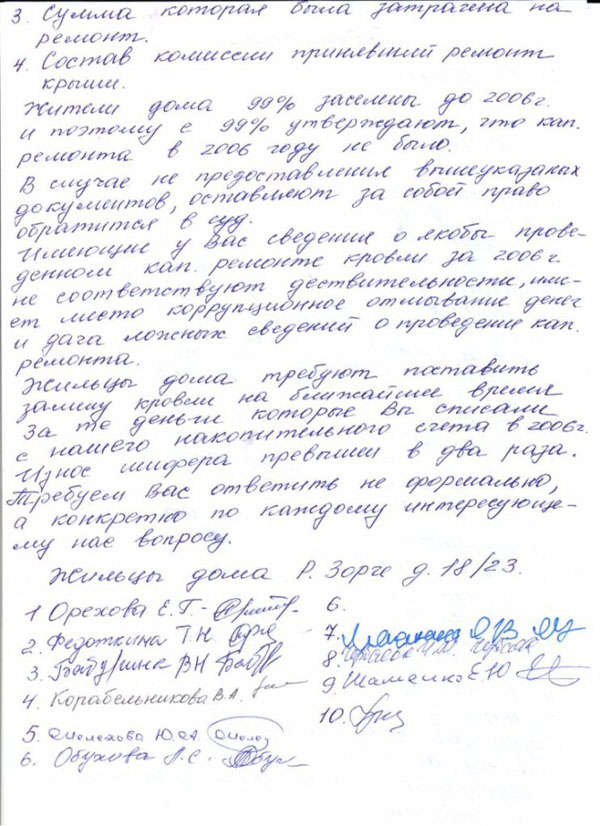 3. Сумма которая была затрачена на
ремонт.
4. Состав комиссии принявший ремонт
крыши.
Жители дома 99% заселины до 2006г.
и поэтому с 99% утверждают, что кап.
ремонта в 2006 году не было.
В случае не предоставления вышеуказаных
документов, оставляют за собой право
обратится в суд.
Имеющие у Вас сведения о якобы прове-
денном кап. ремонте кровли за 2006г.
не соответствуют дествительности, име-
ет место коррупционное отмывание денег
и дача ложных сведений о проведение кап.
ремонта.
Жильцы дома требуют поставить
замену кровли на ближайшее время
За те деньги которые Вы списали
с нашего накопительного счета в 2006г.
Износ шифера превышен в два раза.
Требуем Вас ответить не формально,
а конкретно по каждому интересующе-
му нас вопросу.
Жильцы дома Р. Зорге д. 18/23.
1 Орехова Е.Г. -
2. Федоткина Т.Н.
3. В.Н.
4. Корабельникова В.А.
5. Ю.А.
6. Обухова Л.С.
6.
7.
8.
9. Е.Ю
10.